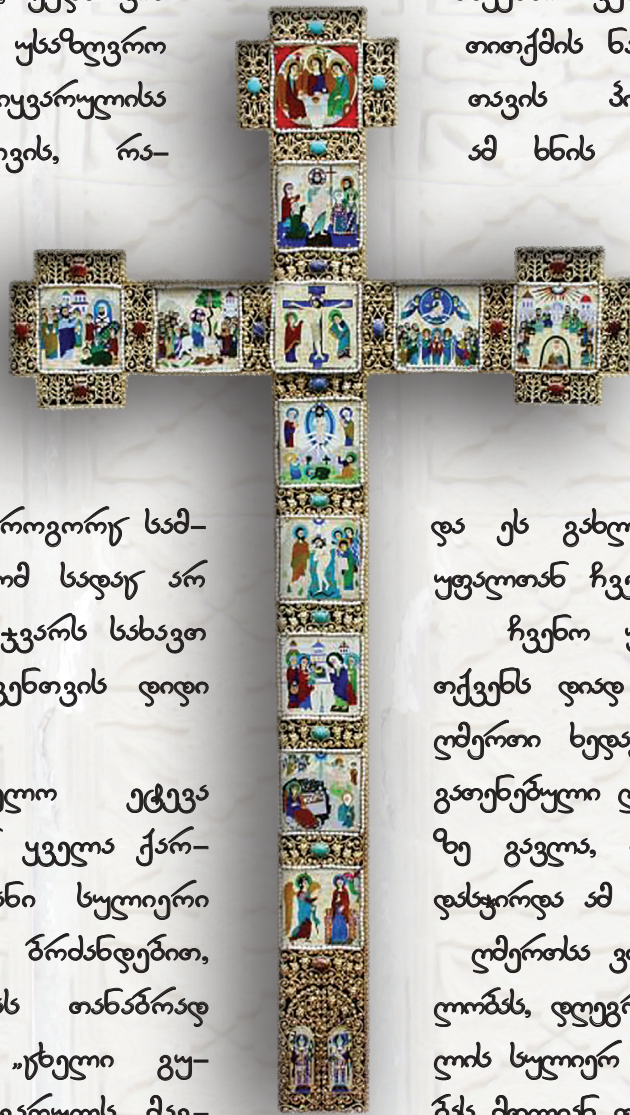 უსაზღვრო
იყვარულისა
ვის, რა–
როგორც სამ–
ომ სადაც არ
ჯვარს სახავთ
ვენთვის დიდი
ელო ეტევა
ყველა ქარ–
ანი სულიერი
ბრძანდებით,
ას თანაბრად
„ცხელი გუ–
თითქმის ნა
თავის პი
ამ ხნის
და ეს გახლ
უფალთან ჩვე
ჩვენო
თქვენს დიად
ღმერთი ხედა
გათენებული დ
ზე გავლა,
დასჭირდა ამ
ღმერთსა ვ
ლობას, დღეგრ
ლის სულიერ